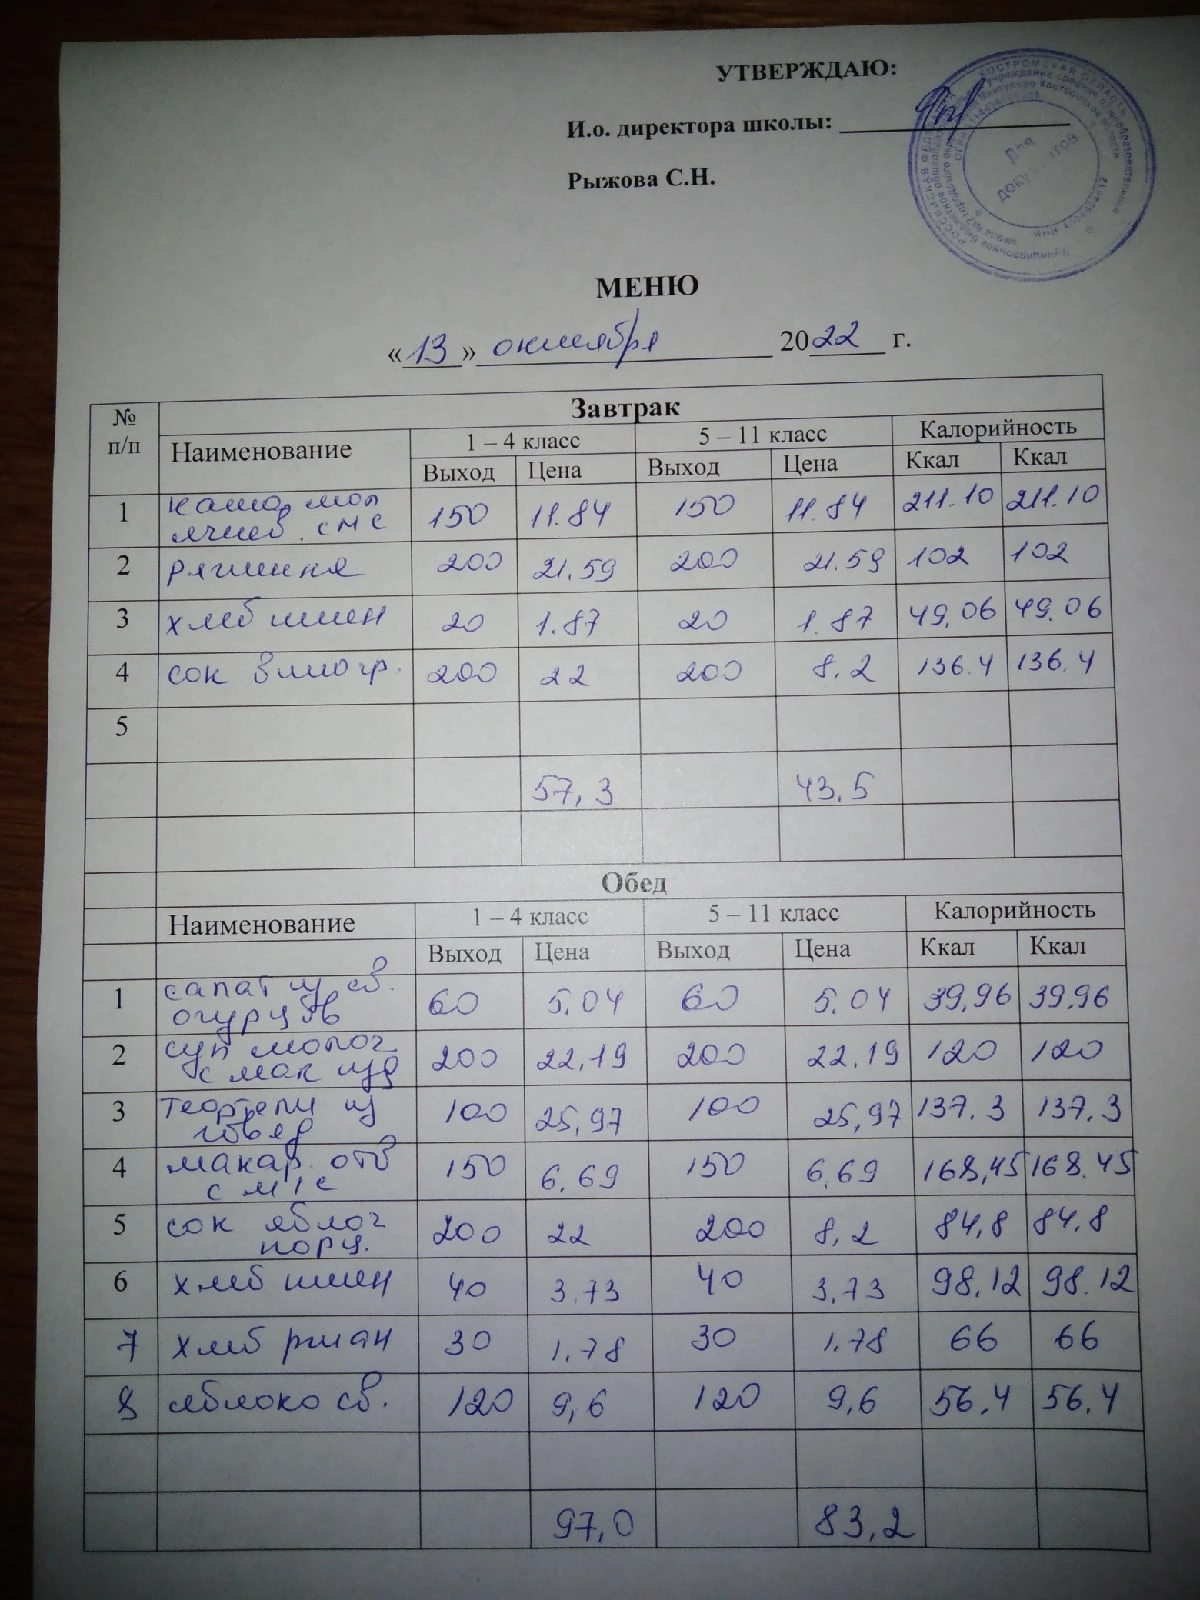 УТВЕРЖДАЮ:
И.о. директора школы:
Рыжова С.Н.
КОСТРОМСКАЯ ОБЛАСТЬ
РОССИЙСКАЯ ФЕДЕРАЦИЯ
Для документов
МЕНЮ
«13» октября 2022 г.
№ п/п Завтрак
Наименование 1 – 4 класс 5 – 11 класс Калорийность
Выход Цена Выход Цена Ккал Ккал
1 каша мол 150 11.84 150 11.84 211.10 211.10
ячнев. с м с
2 ряженка 200 21.59 200 21.59 102 102
3 хлеб пшен 20 1.87 20 1.87 49,06 49.06
4 сок виногр. 200 22 200 8.2 136.4 136.4
5
57,3 43,5
Обед
Наименование 1 – 4 класс 5 – 11 класс Калорийность
Выход Цена Выход Цена Ккал Ккал
1 салат из св. 60 5.04 60 5.04 39,96 39.96
огурцов
2 суп молоч 200 22,19 200 22.19 120 120
с мак изд
3 тефтели из 100 25,97 100 25,97 137.3 137.3
говяд
4 макар. отв 150 6.69 150 6.69 168,45 168.45
с м/с
5 сок яблоч 200 22 200 8,2 84,8 84,8
порц.
6 хлеб пшен 40 3.73 40 3.73 98,12 98.12
7 хлеб ржан 30 1.78 30 1.78 66 66
8 яблоко св. 120 9,6 120 9,6 56,4 56,4
97,0 83,2